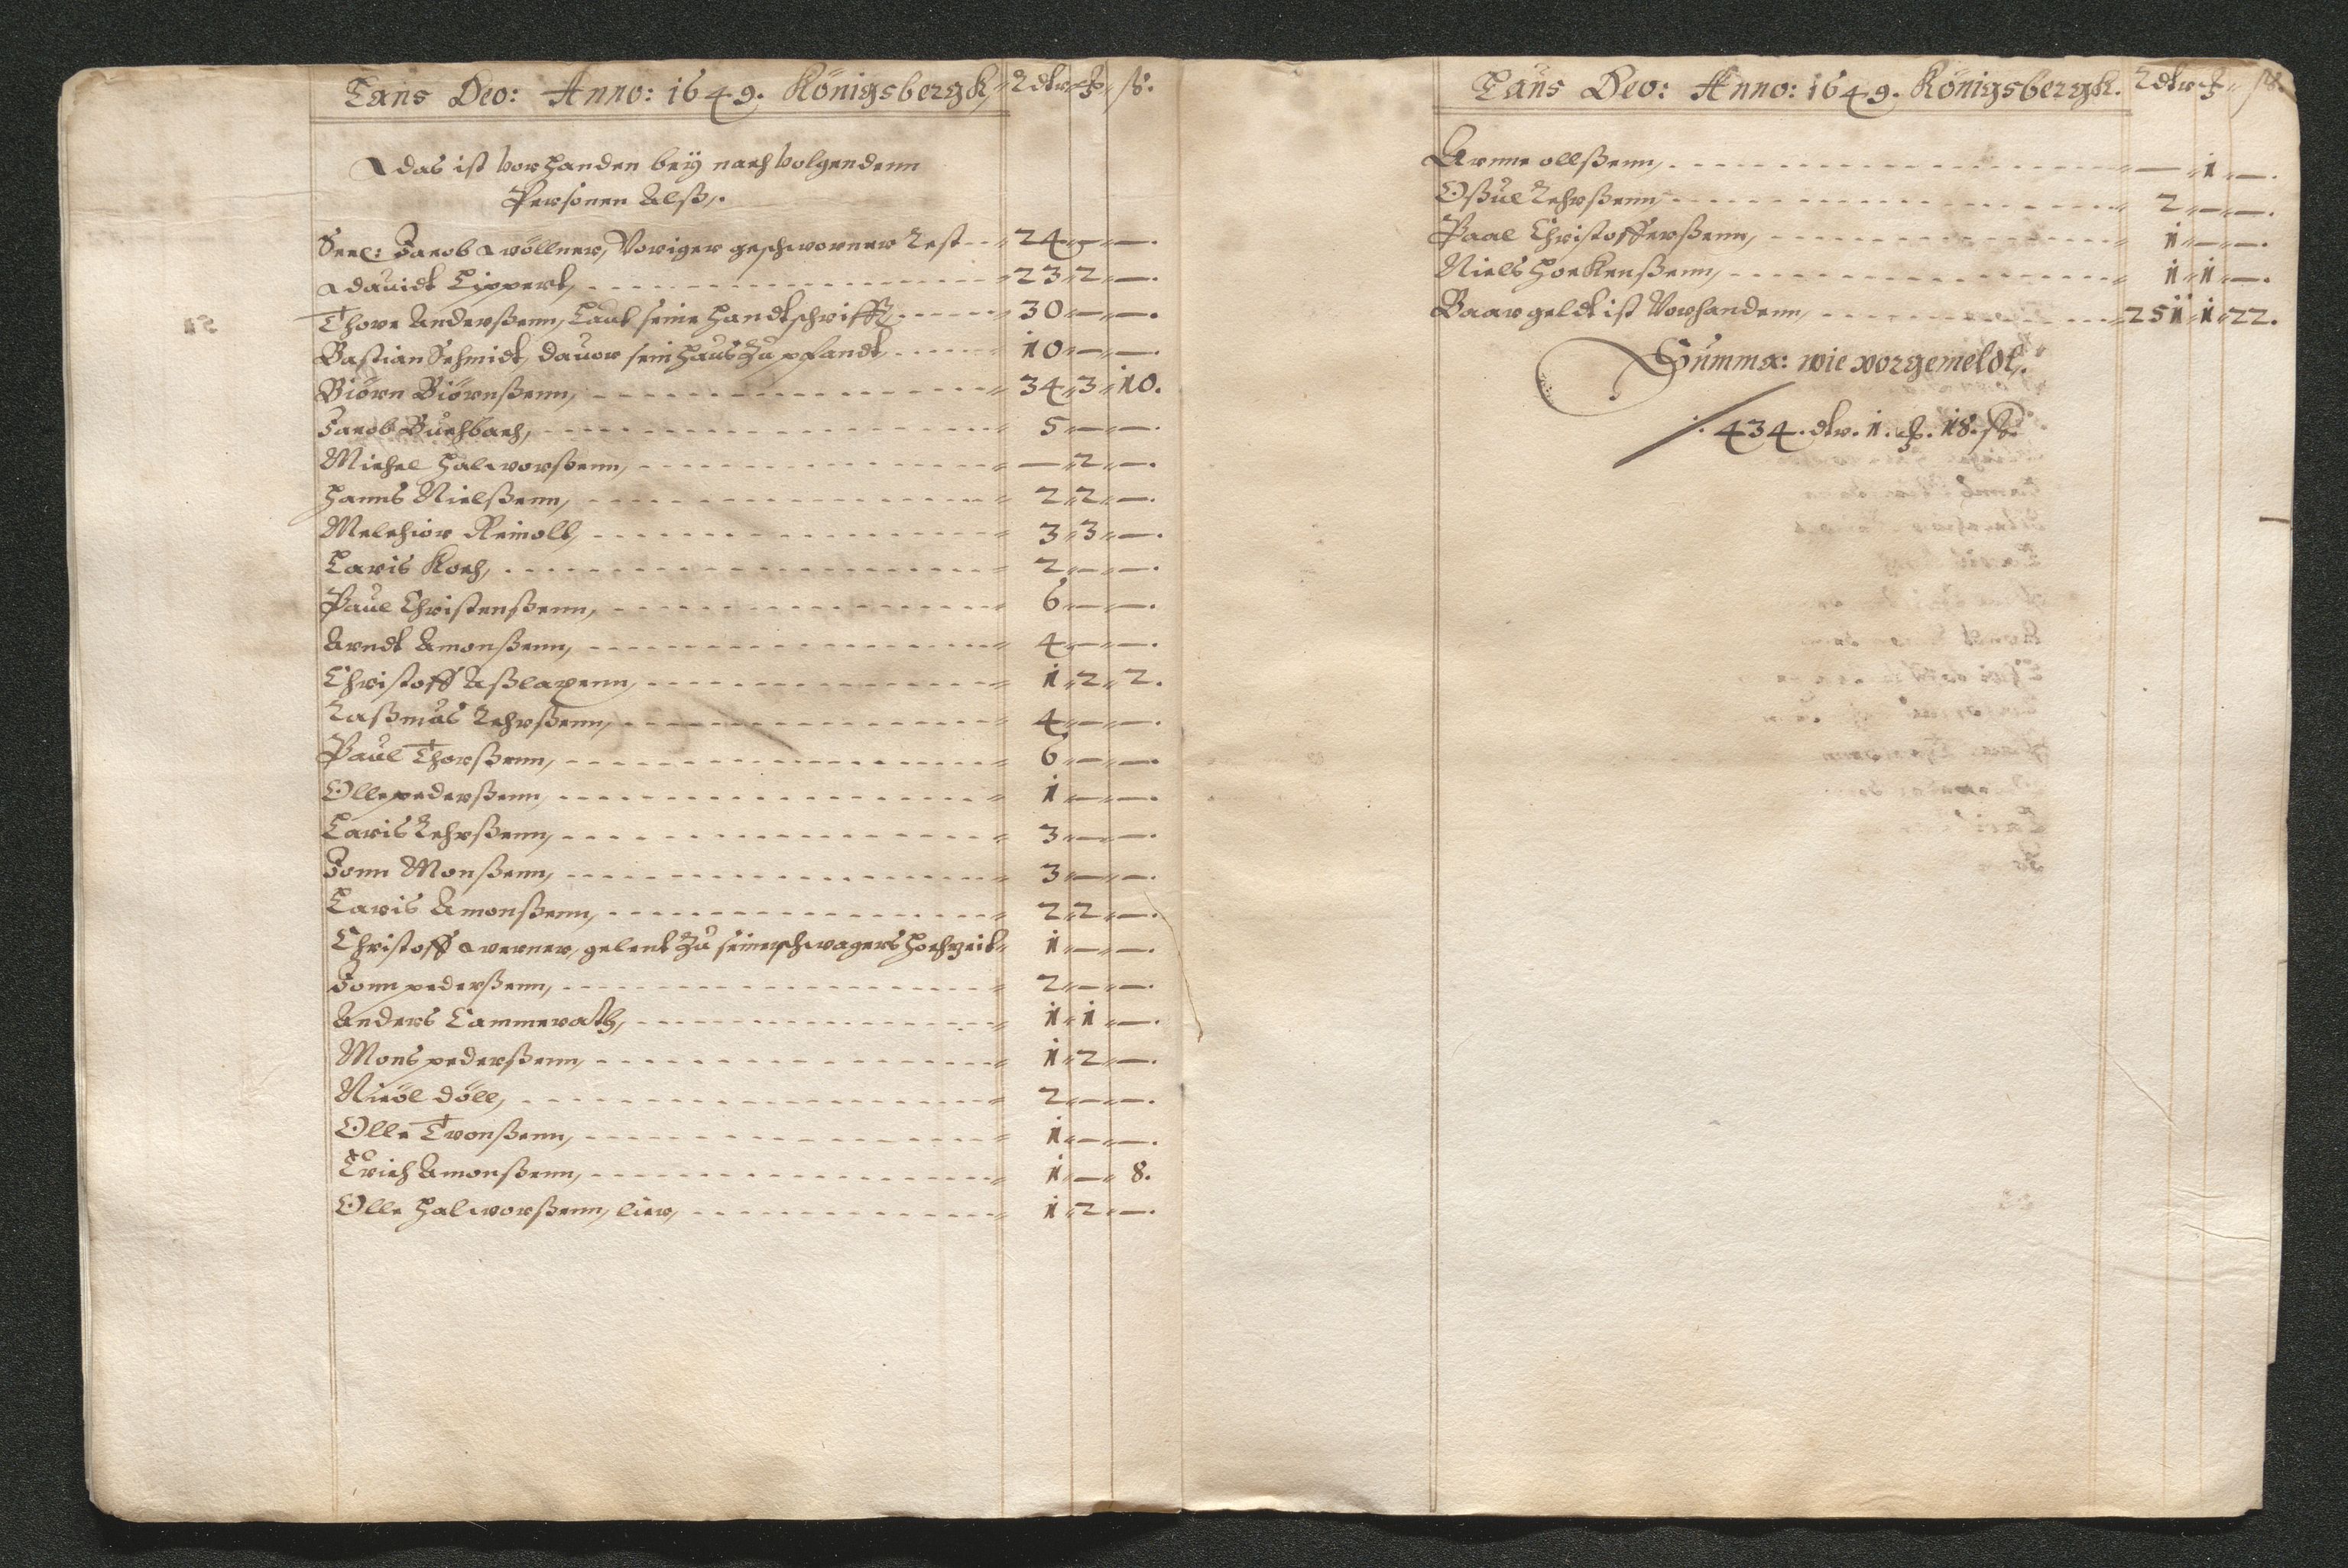 Laus Deo: Anno: 1649. Königsbergk, Rdlr ₰ ß.
das ist vorhanden beÿ nachvolgendenn
Personen Alß,.
Seel: Jacob Wöllner, Voriger geschworner Rest -- 24 — —.
Dauidt Lippert, - - - 23 " 2 " —.
Thore Anderßenn, Laut seine Handtschrifft, - - - 30 " — " —.
Bastian Schmidt, dauor sein Hauß zu pfandt, - - - 10 " — " —.
Biörn Biörnßenn, - - - 34 " 3 " 10.
Jacob Buchbach, - - - 5 " — " —.
Michel Halvorßenn, - - - — " 2 " —.
Hanns Nielßenn, - - - 2 " 2 " —.
Melchior Reinolt, - - - 3 " 3 " —.
Laris Koch, - - - 2 " — " —.
Paul Christenßenn, - - - 6 " — " —.
Arndt Amonßenn, - - - 4 " — " —.
Christoff Aßlaxenn, - - - 1 " 2 " 2.
Raßmus Lehrßenn, - - - 4 " — " —.
Paul Thorßenn, - - - 6 " — " —.
Olle pederßenn, - - - 1 " — " —.
Laris Lehrßenn, - - - 3 " — " —.
Jonn Monßenn, - - - 3 " — " —.
Laris Amonßenn, - - - 2 " 2 " —.
Christoff Werner, gelent zu seiner schwagers Hochzeit " 1 " — " —.
Jonn pederßenn, - - - 2 " — " —.
Anders Cammerath, - - - 1 " 1 " —.
Mons pederßenn, - - - 1 " 2 " —.
Nicöl Döll, - - - 2 " — " —.
Olle Tronßenn, - - - 1 " — " —.
Erich Amonßenn, - - - 1 " — " 8.
Olle Halvorßenn, lier, - - - 1 " 2 " —.
Laus Deo: Anno: 1649. Königsbergk. Rdlr ₰ ß.
Arnne ollßenn, - - - — " 1 " —.
Oßul Lehrßenn, - - - 2 " — " —.
Paal Christofferßenn, - - - 1 " — " —.
Niels Hockenßenn, - - - 1 " 1 " —.
Baar geldt ist Vorhandenn, - - - 251 " 1 " 22.
Summa: wie vorgemeldt,.
434. dlr. 1. ₰. 18. ß.